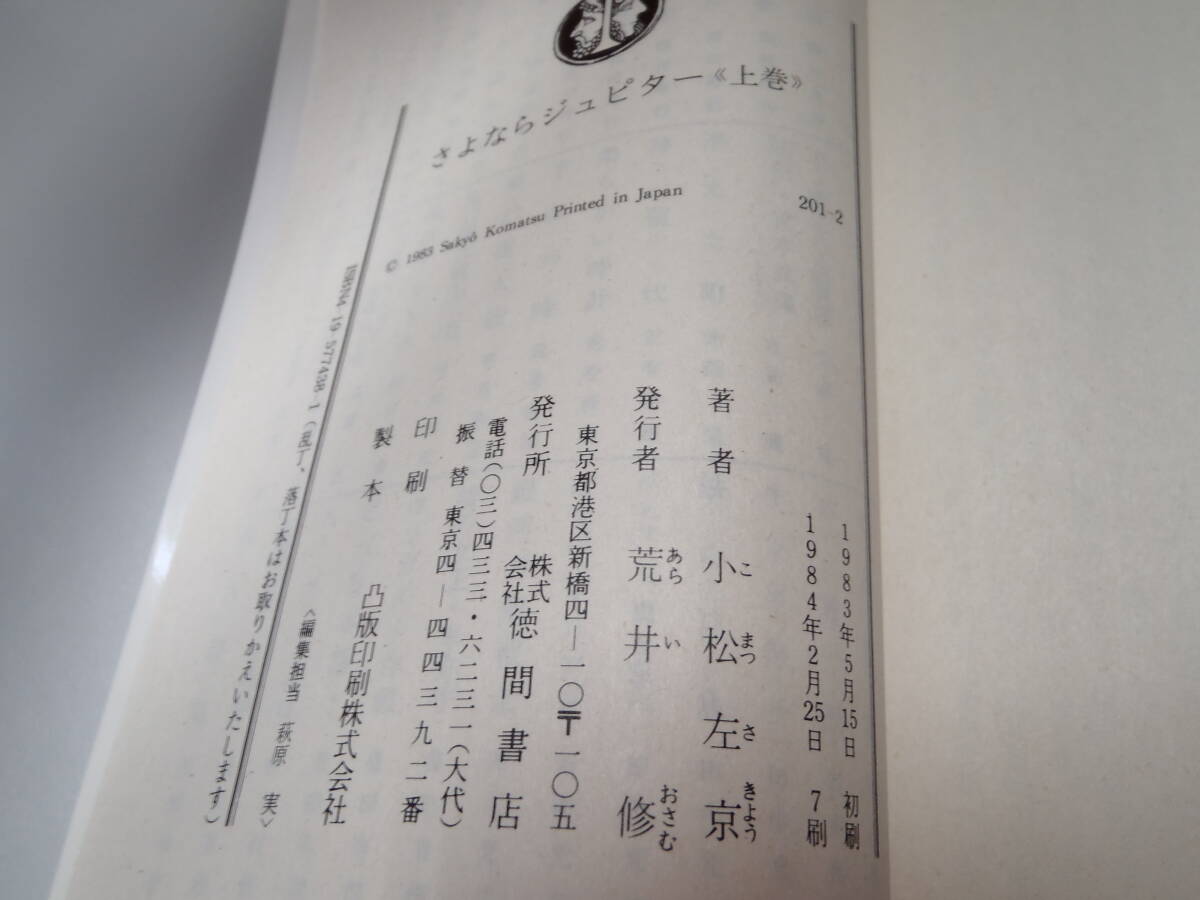 さよならジュピター《上巻》
© 1983 Sakyō Komatsu Printed in Japan
201-2
1983年5月15日 初刷
1984年2月25日 7刷
著者 小松左京
こ まつ さ きよう
発行者 荒井修
あら い おさむ
東京都港区新橋四―一〇〒一〇五
発行所 株式会社徳間書店
電話(〇三)四三三・六二三一(大代)
振替 東京四―四四三九二番
印刷
製本 凸版印刷株式会社
〈編集担当 萩原 実〉
ISBN4-19-577438-1(乱丁、落丁本はお取りかえいたします)